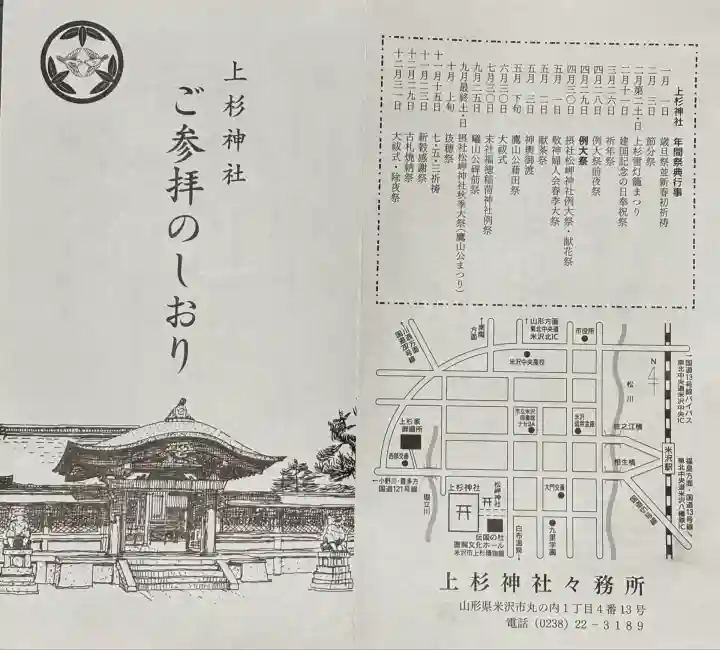 上杉神社
ご参拝のしおり
上杉神社 年間祭典行事
一月 一日 歳旦祭並新春初祈祷
二月 三日 節分祭
二月第二土・日 上杉雪灯籠まつり
二月十一日 建国記念の日奉祝祭
三月二六日 祈年祭
四月二八日 例大祭前夜祭
四月二九日 例大祭
四月三〇日 摂社松岬神社例大祭・献花祭
五月 一日 敬神婦人会春季大祭
五月 二日 献茶祭
五月 三日 神輿御渡
五月 下旬 鷹山公籍田祭
六月三〇日 大祓式
七月三〇日 末社福徳稲荷神社例祭
九月二五日 曦山公碑前祭
九月最終土・日 摂社松岬神社秋季大祭(鷹山公まつり)
十月 上旬 抜穂祭
十一月十五日 七・五・三祈祷
十一月二三日 新穀感謝祭
十二月二九日 古札焼納祭
十二月三一日 大祓式・除夜祭
川西方面
国道287号線
↑南陽方面
↑山形方面
東北中央道
米沢北IC
市役所
米沢中央高校
N
松川
→国道13号線バイパス
東北中央道米沢中央IC
上杉家
御廟所
西部交番
市立米沢
図書館
ナセBA
米沢
信用金庫
住之江橋
相生橋
米沢駅
→福島方面・国道13号線
東北中央道米沢八幡原IC
←小野川・喜多方
国道121号線
堀立川
上杉神社
松岬神社
大門交番
伝国の杜
置賜文化ホール
米沢市上杉博物館
白布温泉↓
九里学園
上杉神社々務所
山形県米沢市丸の内1丁目4番13号
電話(0238)22-3189